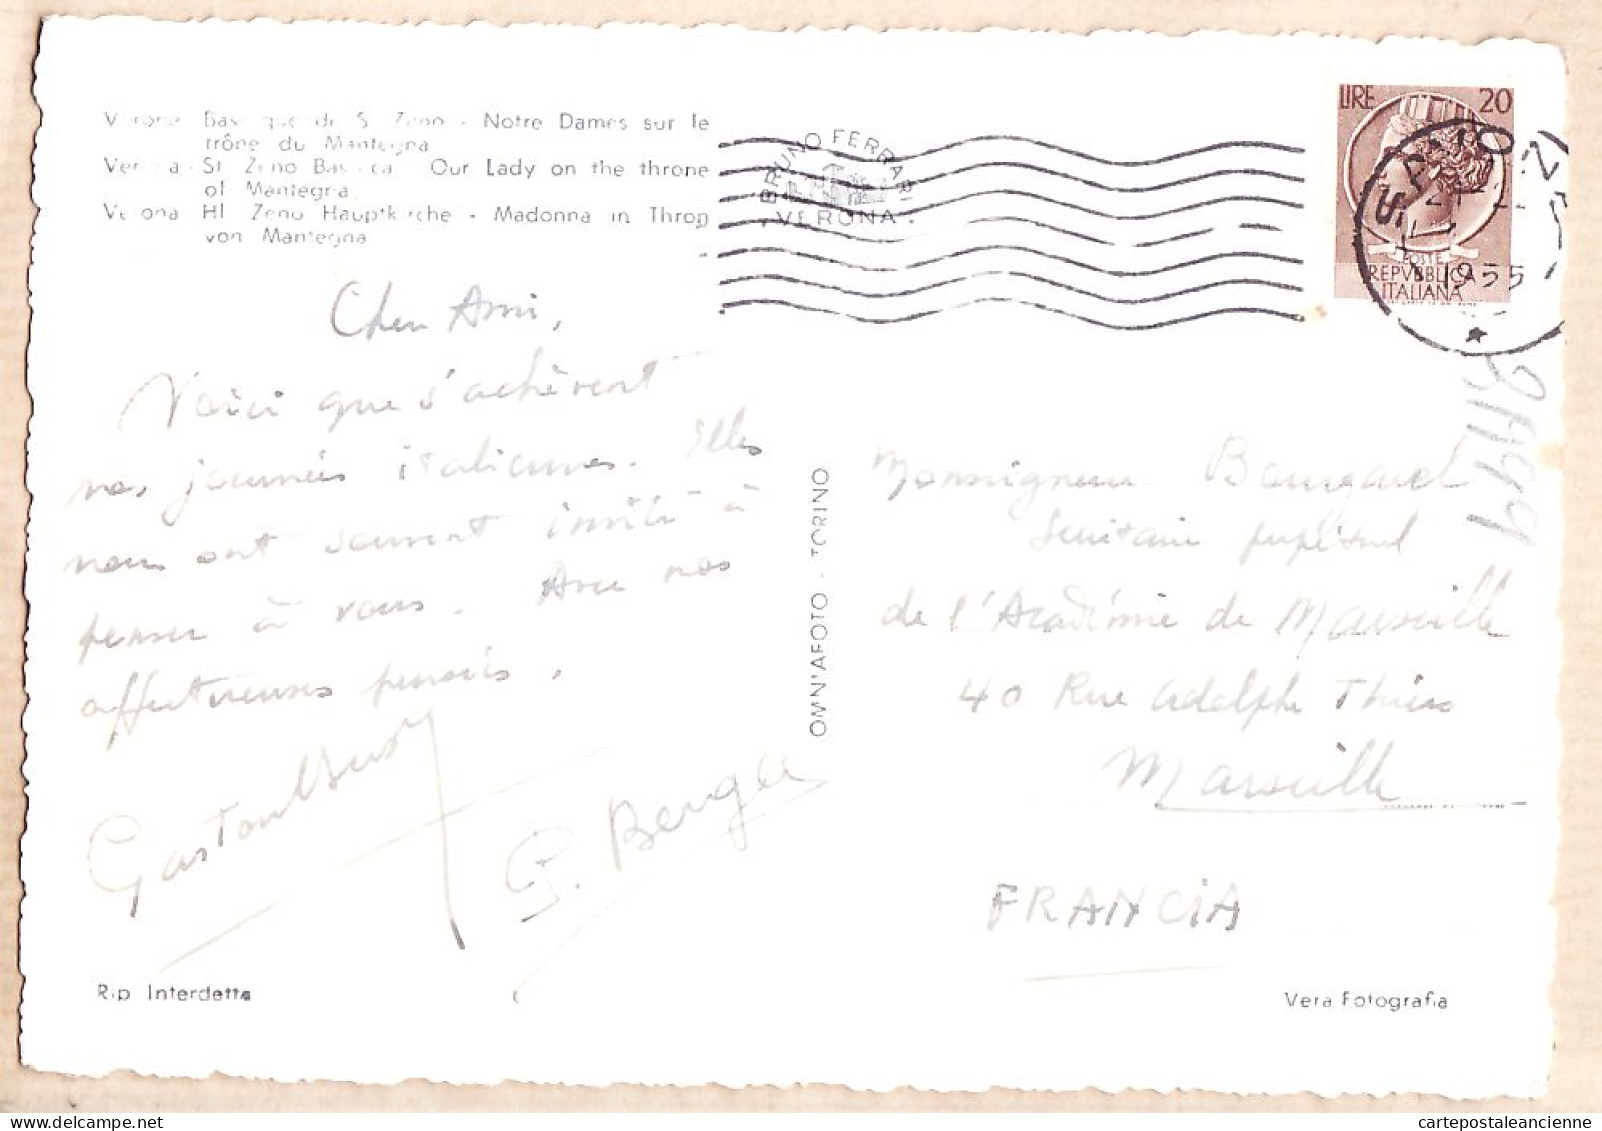 Verone Basilique de S. Zeno - Notre Dames sur le
trône du Mantegna
Verona - St Zeno Basilica Our Lady on the throne
of Mantegna
Verona Hl. Zeno Hauptkirche - Madonna in Thron
von Mantegna
BRUNO FERRARI
VERONA
LIRE 20
POSTE
REPVBBLICA
ITALIANA
1955
Cher Ami,
Voici que s'achèvent
nos journées italiennes. Elles
nous ont souvent invité à
penser à vous. Avec nos
affectueuses pensées.
Gaston
G.
OMNIAFOTO - TORINO
Monseigneur
de l'Académie de Marseille
40 Rue Adolphe Thiers
Marseille
FRANCIA
Rip Interdetta
Vera Fotografia
cartepostaleancienne